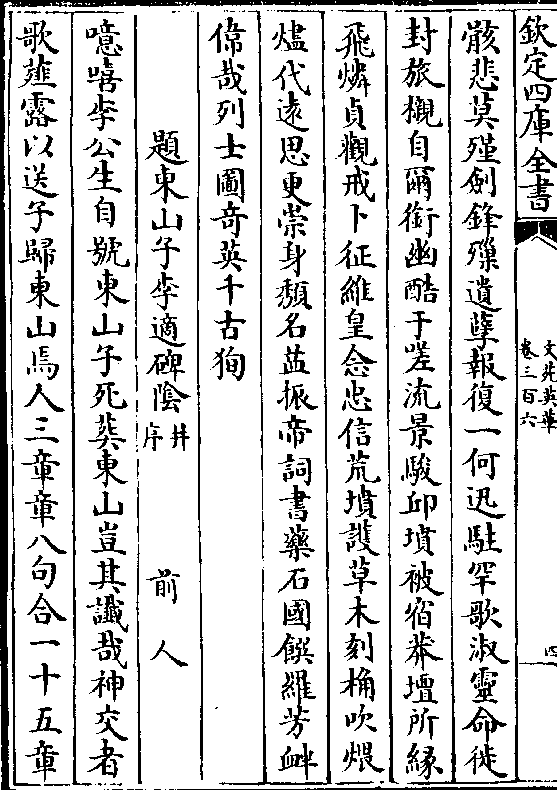 欽定四庫全書
文苑英華
卷三百六
四
骸悲莫殣劍鋒殫遺孽報復一何迅駐罕歌淑靈命徙
封旅櫬自爾銜幽酷于嗟流景駿邱墳被宿莽壇所緣
飛燐貞觀戒卜征維皇念忠信荒墳護草木刻桷吹煨
燼代遠思更崇身頽名益振帝詞書藥石國饌羅芳衅
偉哉列士圖奇英千古狥
題東山子李適碑隂并序 前人
噫嘻李公生自號東山子死葬東山豈其讖哉神交者
歌薤露以送子歸東山焉人三章章八句合一十五章